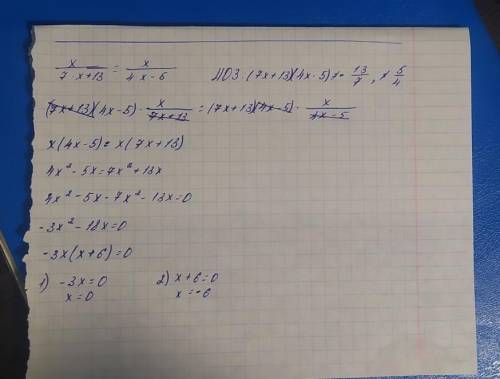 x / 7x+13 = x / 4x-5 ДОЗ: (7x+13)(4x-5) ≠ - 13/7, ≠ 5/4
(7x+13)(4x-5) · x / 7x+13 = (7x+13)(4x-5) · x / 4x-5
x(4x-5) = x(7x+13)
4x² - 5x = 7x² + 13x
4x² - 5x - 7x² - 13x = 0
-3x² - 18x = 0
-3x(x+6) = 0
1) -3x = 0 2) x+6 = 0
x = 0 x = -6